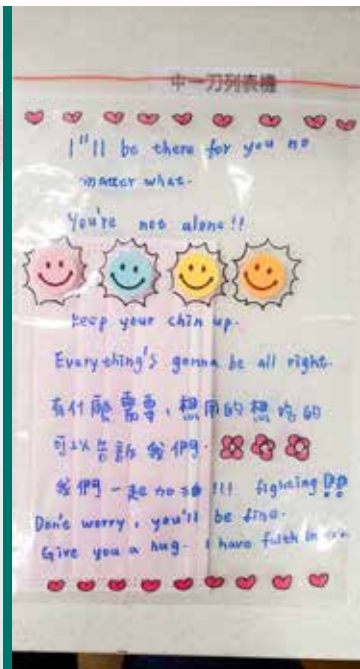 中一刀列表機
I"ll be there for you no
matter what.
You're not alone!!
keep your chin up.
Everything's gonna be all right.
有什麼需要,想用的想吃的
可以告訴我們.
我們一起加油!!! fighting !!
Don't worry, you'll be fine.
Give you a hug. I have faith in